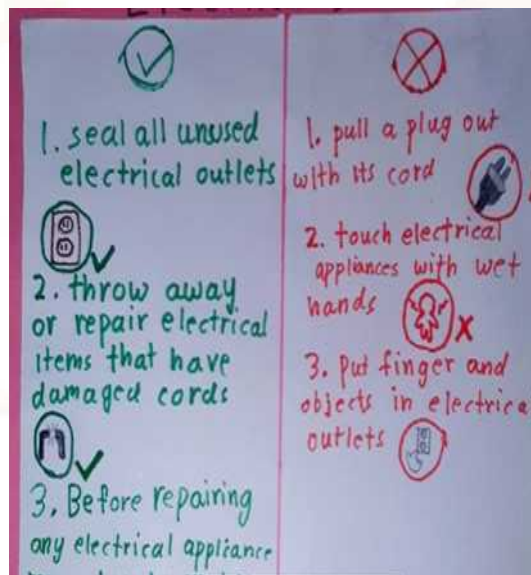 1. seal all unused
electrical outlets
2. throw away
or repair electrical
items that have
damaged cords
3. Before repairing
any electrical appliance
1. pull a plug out
with its cord
2. touch electrical
appliances with wet
hands
3. Put finger and
objects in electrica
outlets